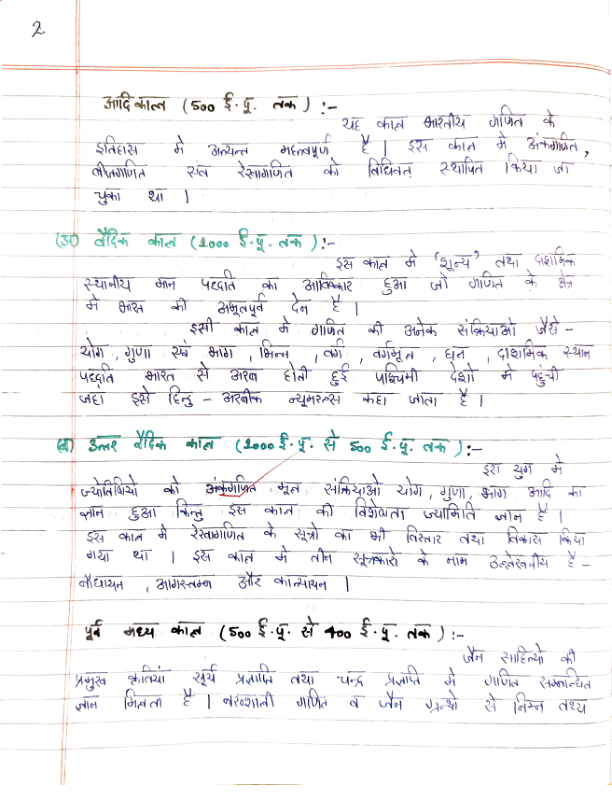 2
आदिकाल (500 ई.पू. तक) :-
यह काल भारतीय गणित के
इतिहास में अत्यन्त महत्वपूर्ण है। इस काल में अंकगणित,
बीजगणित एवं रेखागणित को विधिवत स्थापित किया जा
चुका था।
(अ) वैदिक काल (1000 ई.पू. तक) :-
इस काल में 'शून्य' तथा दाशमिक
स्थानीय मान पद्दति का आविष्कार हुआ जो गणित के क्षेत्र
में भारत की अभूतपूर्व देन है।
इसी काल में गणित की अनेक संक्रियाओं जैसे -
योग, गुणा एवं भाग, भिन्न, वर्ग, वर्गमूल, घन, दाशमिक स्थान
पद्दति भारत से अरब होती हुई पाश्चिमी देशों में पहुंची
जहा इसे हिन्दु - अरबीक न्यूमरल्स कहा जाता है।
(ब) उत्तर वैदिक काल (1000 ई.पू. से 500 ई.पू. तक) :-
इस युग में
ज्योतिषियो को अंकगणित मूल संक्रियाओ योग, गुणा, भाग आदि का
ज्ञान हुआ किन्तु इस काल की विशेषता ज्यामिति ज्ञान है।
इस काल में रेखागणित के सूत्रो का भी विस्तार तथा विकास किया
गया था। इस काल में तीन सूत्रकारो के नाम उल्लेखनीय है -
बौधायन, आगस्तम्ब और कात्यायन।
पूर्व मध्य काल (500 ई.पू. से 400 ई.पू. तक) :-
जैन साहित्यो की
प्रमुख कृतियां सूर्य प्रज्ञाप्ति तथा चन्द्र प्रज्ञाप्ति में गणित सम्बान्धित
ज्ञान मिलता है। बख्शाली गणित व जैन ग्रन्थो से निम्न तथ्य